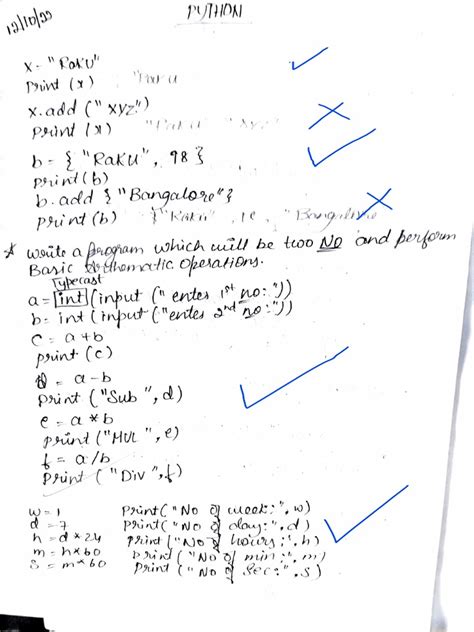 12/10/22
PYTHON
x = "Raku"
Print (x) "Raku
x.add ("xyz")
print (x) "Raku xyz"
b = { "Raku", 98 }
print(b)
b.add { "Bangalore"}
print (b) {"Raku", "Bangalore
* write a program which will be two NO and perform
Basic Arthematic operations.
Typecast
a = int (input ("enter 1st no:"))
b = int (input ("enter 2nd no:"))
c = a+b
print (c)
d = a-b
print ("Sub", d)
e = a*b
print ("MUL", e)
f = a/b
print ("Div", f)
w = 1 print ("No of week:", w)
d = 7 print ("No of day:", d)
h = d*24 print ("No of hours:", h)
m = h*60 print ("No of min:", m)
s = m*60 print ("No of Sec:", s)